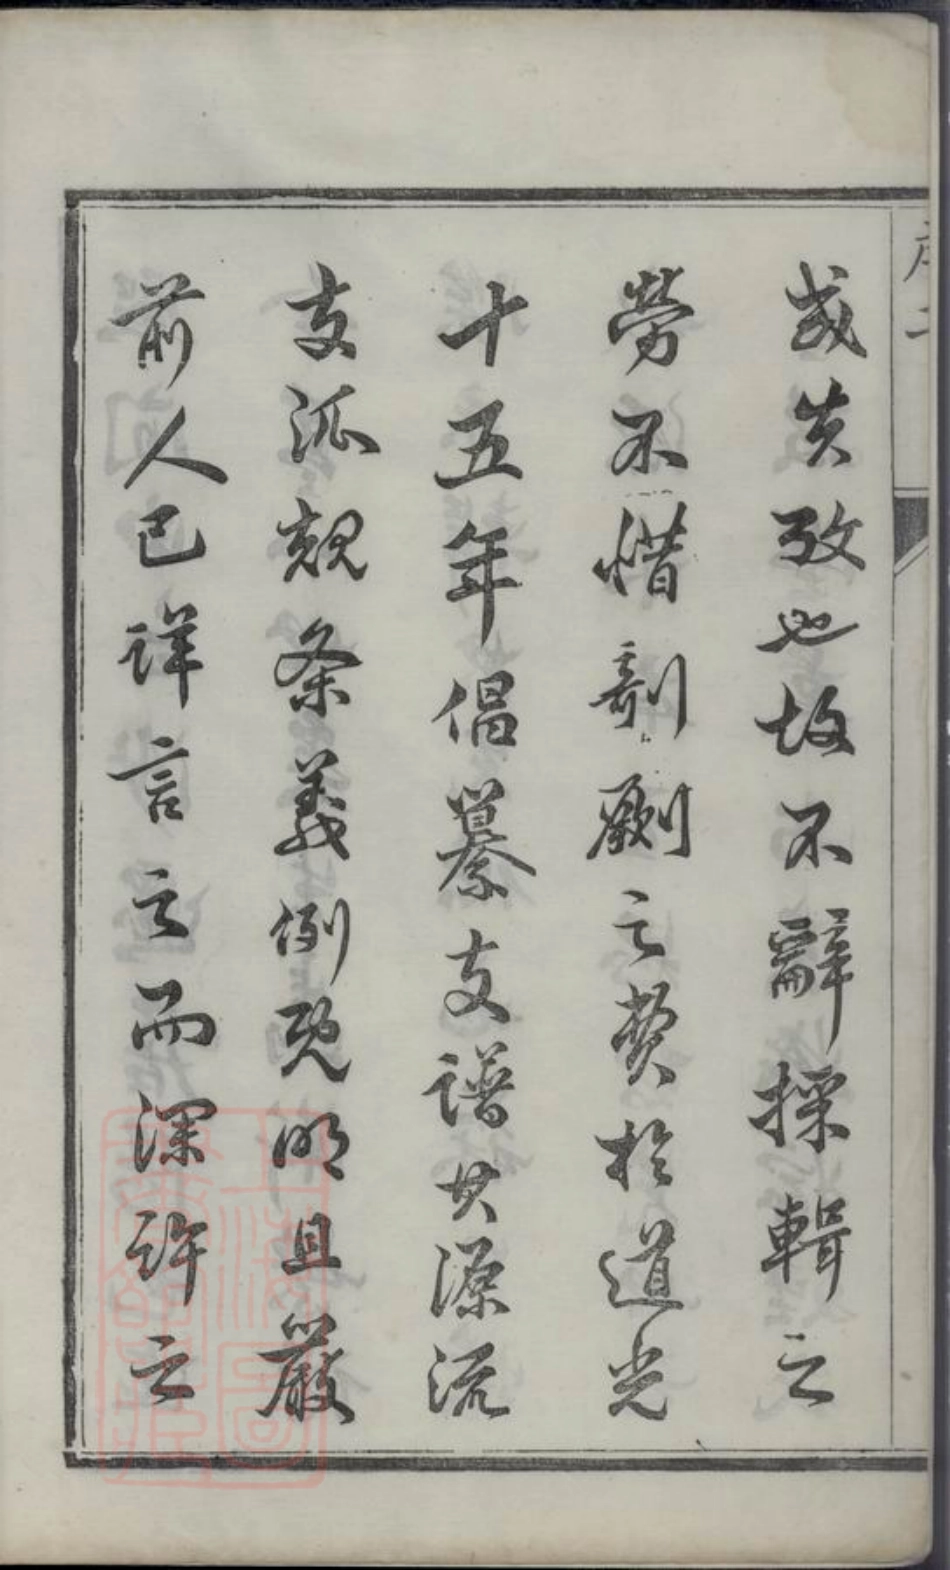 序二
或失攷也故不辭採輯之
勞不惜剞劂之費於道光
十五年倡纂支譜其源流
支派規条義例既明且嚴
前人已詳言之而深許之